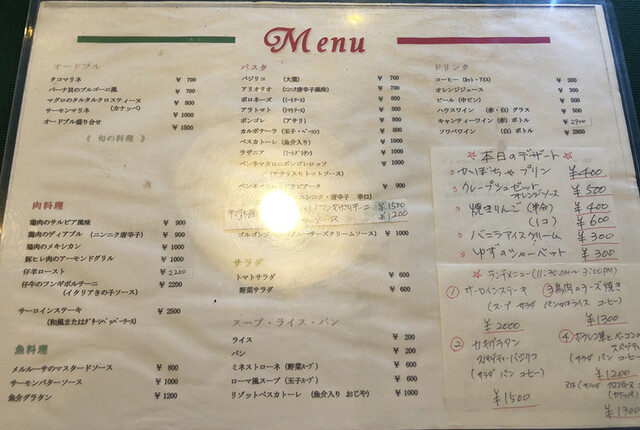 Menu
オードブル
タコマリネ ¥ 700
バーナ貝のブルゴーニ風 ¥ 700
マグロのタルタルクロスティーヌ ¥ 800
サーモンマリネ (カナッペ) ¥ 1000
オードブル盛り合せ ¥ 1500
《 旬の料理 》
肉料理
鶏肉のサルビア風味 ¥ 900
鶏肉のディアブル (ニンニク唐辛子) ¥ 900
鶏肉のメキシカン ¥ 1000
豚ヒレ肉のアーモンドグリル ¥ 1000
仔羊ロースト ¥ 2200
仔牛のフンギポルチーニ ¥ 2200
(イタリアきの子ソース)
サーロインステーキ ¥ 2500
魚料理
メルルーサのマスタードソース ¥ 800
サーモンバターソース ¥ 1000
魚介グラタン ¥ 1200
パスタ
バジリコ (大葉) ¥ 700
アリオリオ (ニンニク唐辛子風味) ¥ 700
ボロネーズ (ミートソース) ¥ 800
アラトマト ¥ 800
ボンゴレ (アサリ) ¥ 800
カルボナーラ (玉子・ベーコン)
ペスカトーレ (魚介入り)
ラザニア
ペンネマカロニボンゴレロッソ
(アサリ入りトマトソース)
ペンネマカロニアラビアータ ¥ 900
ニンニク・唐辛子 辛口)
¥1500
¥1200
ゴルゴンゾーラチーズクリームソース) ¥ 1000
サラダ
トマトサラダ ¥ 600
野菜サラダ ¥ 600
スープ・ライス・パン
ライス ¥ 200
パン ¥ 200
ミネストローネ (野菜スープ) ¥ 400
ローマ風スープ (玉子スープ) ¥ 400
リゾットペスカトーレ (魚介入り おじや) ¥ 1000
ドリンク
コーヒー (ホット・アイス) ¥ 300
オレンジジュース ¥ 300
ビール (中ビン) ¥ 500
ハウスワイン (赤・白) グラス ¥ 500
キャンティーワイン (赤) ボトル ¥ 2900
ソワベワイン (白) ボトル ¥ 2800
☆ 本日のデザート ☆
○ かぼちゃプリン ¥400
○ クレープシュゼット オレンジソース ¥500
○ 焼きりんご (半分) ¥400
(1コ) ¥600
○ バニラアイスクリーム ¥300
○ ゆずのシャーベット ¥300
☆ ランチメニュー (11:30AM〜3:00PM)
① サーロインステーキ
(スープ サラダ パン又はライス コーヒー)
¥2000
③ 鳥肉のチーズ焼き
¥1300
② カキグラタン
スパゲティーバジリコ
(サラダ パン コーヒー)
¥1500
④ ホウレン草とベーコンの
スパゲティ
(サラダ パン コーヒー)
¥1200
¥1300